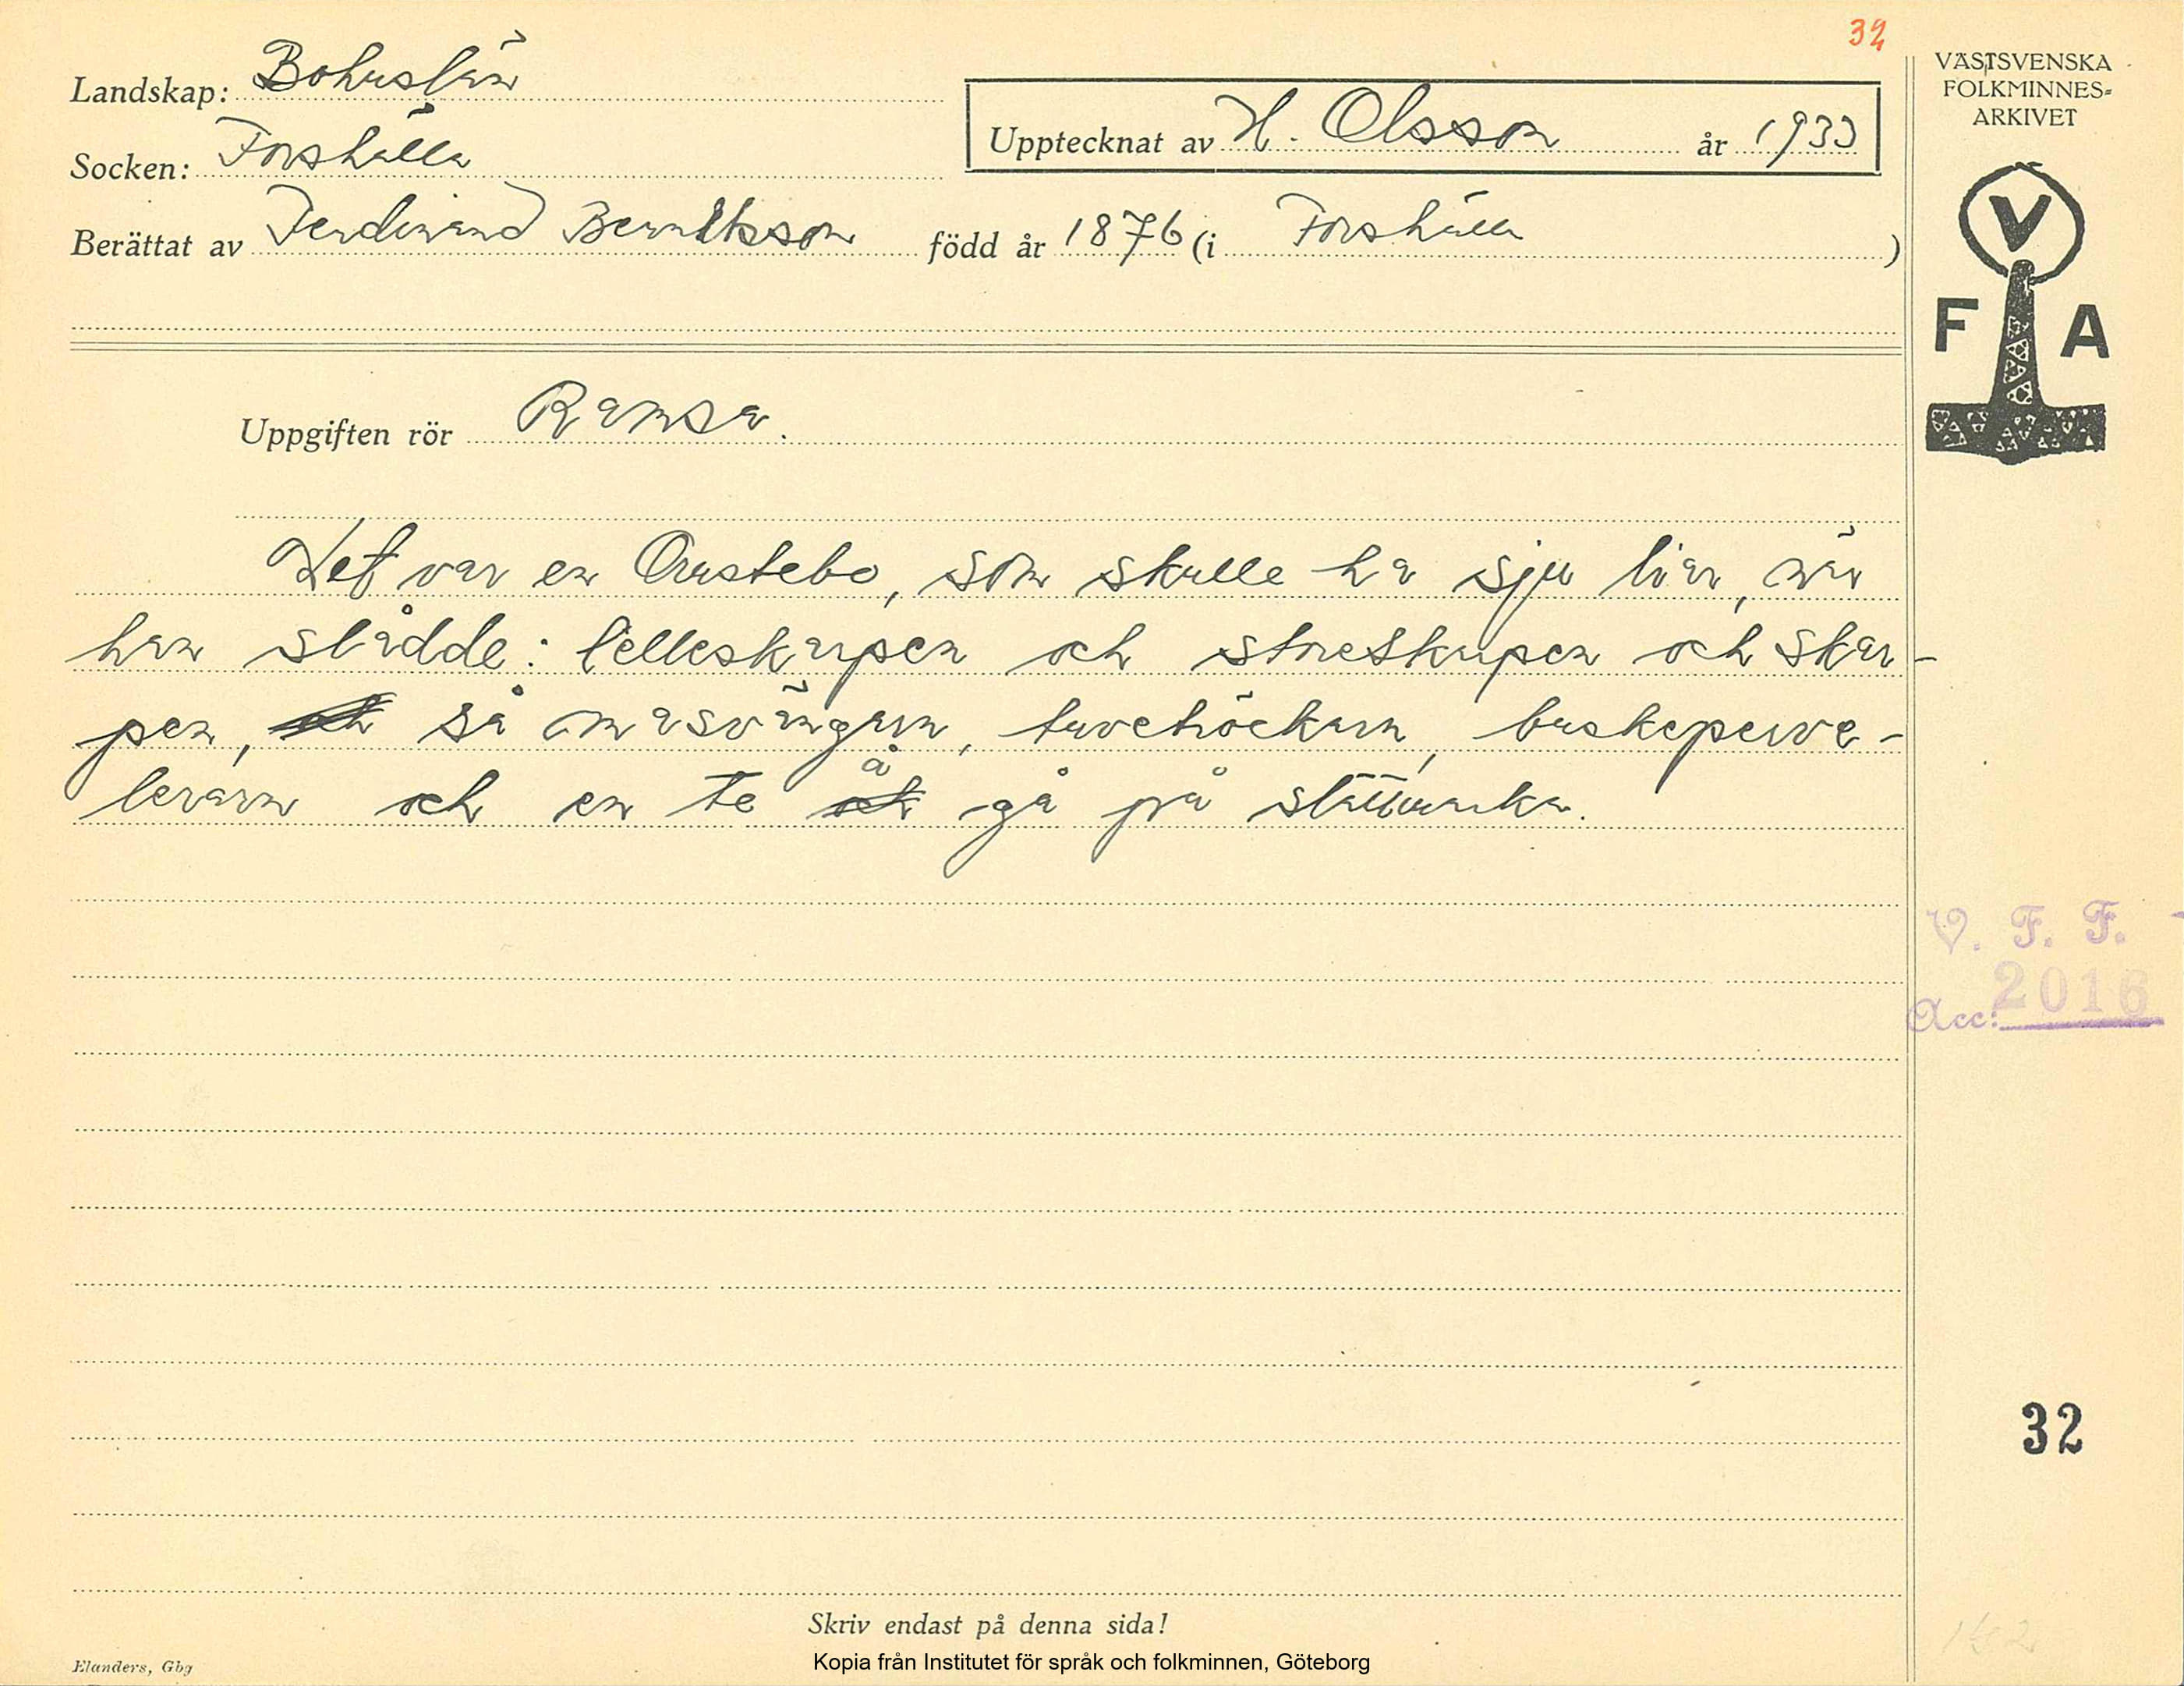 32
Landskap: Bohuslän
Socken: Forshälla
Upptecknat av H. Olsson år 1933
Berättat av Ferdinand Berntsson född år 1876 (i Forshälla)
VÄSTSVENSKA
FOLKMINNES-
ARKIVET
V
F A
Uppgiften rör Ramsa.
Det var en Orustebo, som skulle ha sju liar, när
han slådde: lilleskarpen och storeskarpen och skar-
pen, och så masvängarn, tuvehöckarn, buskeperve-
lerarn och en te å gå på slättmarka.
V. F. F.
Acc: 2016
32
Skriv endast på denna sida!
Elanders, Gbg
Kopia från Institutet för språk och folkminnen, Göteborg